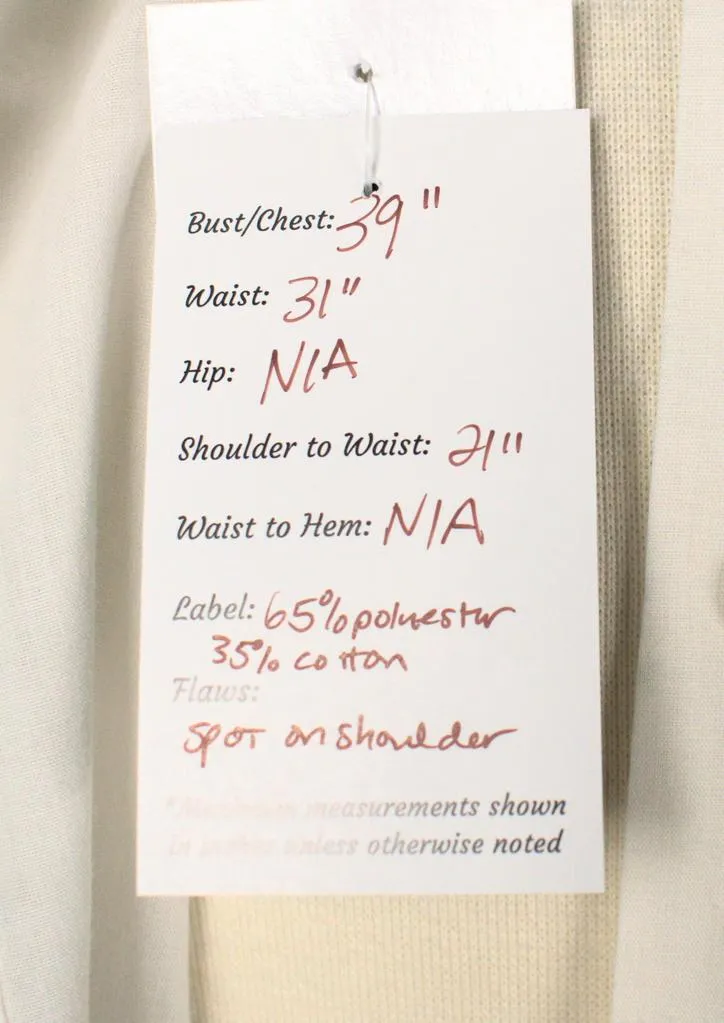 Bust/Chest: 39"
Waist: 31"
Hip: N/A
Shoulder to Waist: 21"
Waist to Hem: N/A
Label: 65% polyester
35% cotton
Flaws:
Spot on shoulder
measurements shown
unless otherwise noted